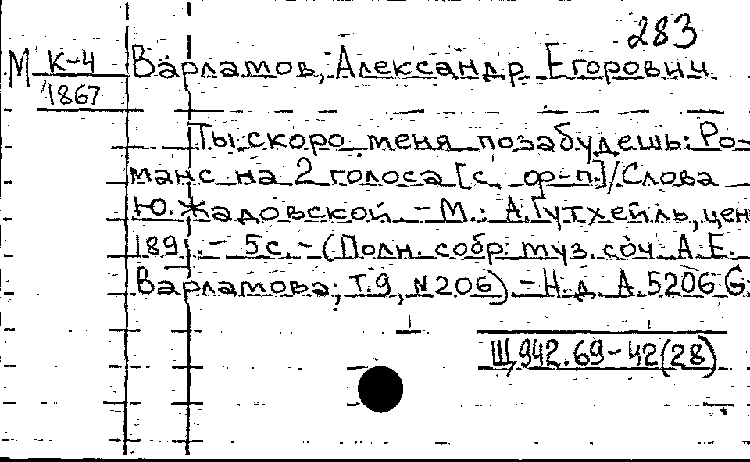 283
М К-4 Варламов, Александр Егорович
1867
Ты скоро меня позабудешь: Ро-
манс на 2 голоса [с ф-п.] / Слова
Ю. Жадовской. - М.: А. Гутхейль, цен
189 . - 5 с. - (Полн. собр. муз. соч. А. Е.
Варламова; Т. 9, N 206) - Н. д. А. 5206 G.
Щ942.69-42(28)